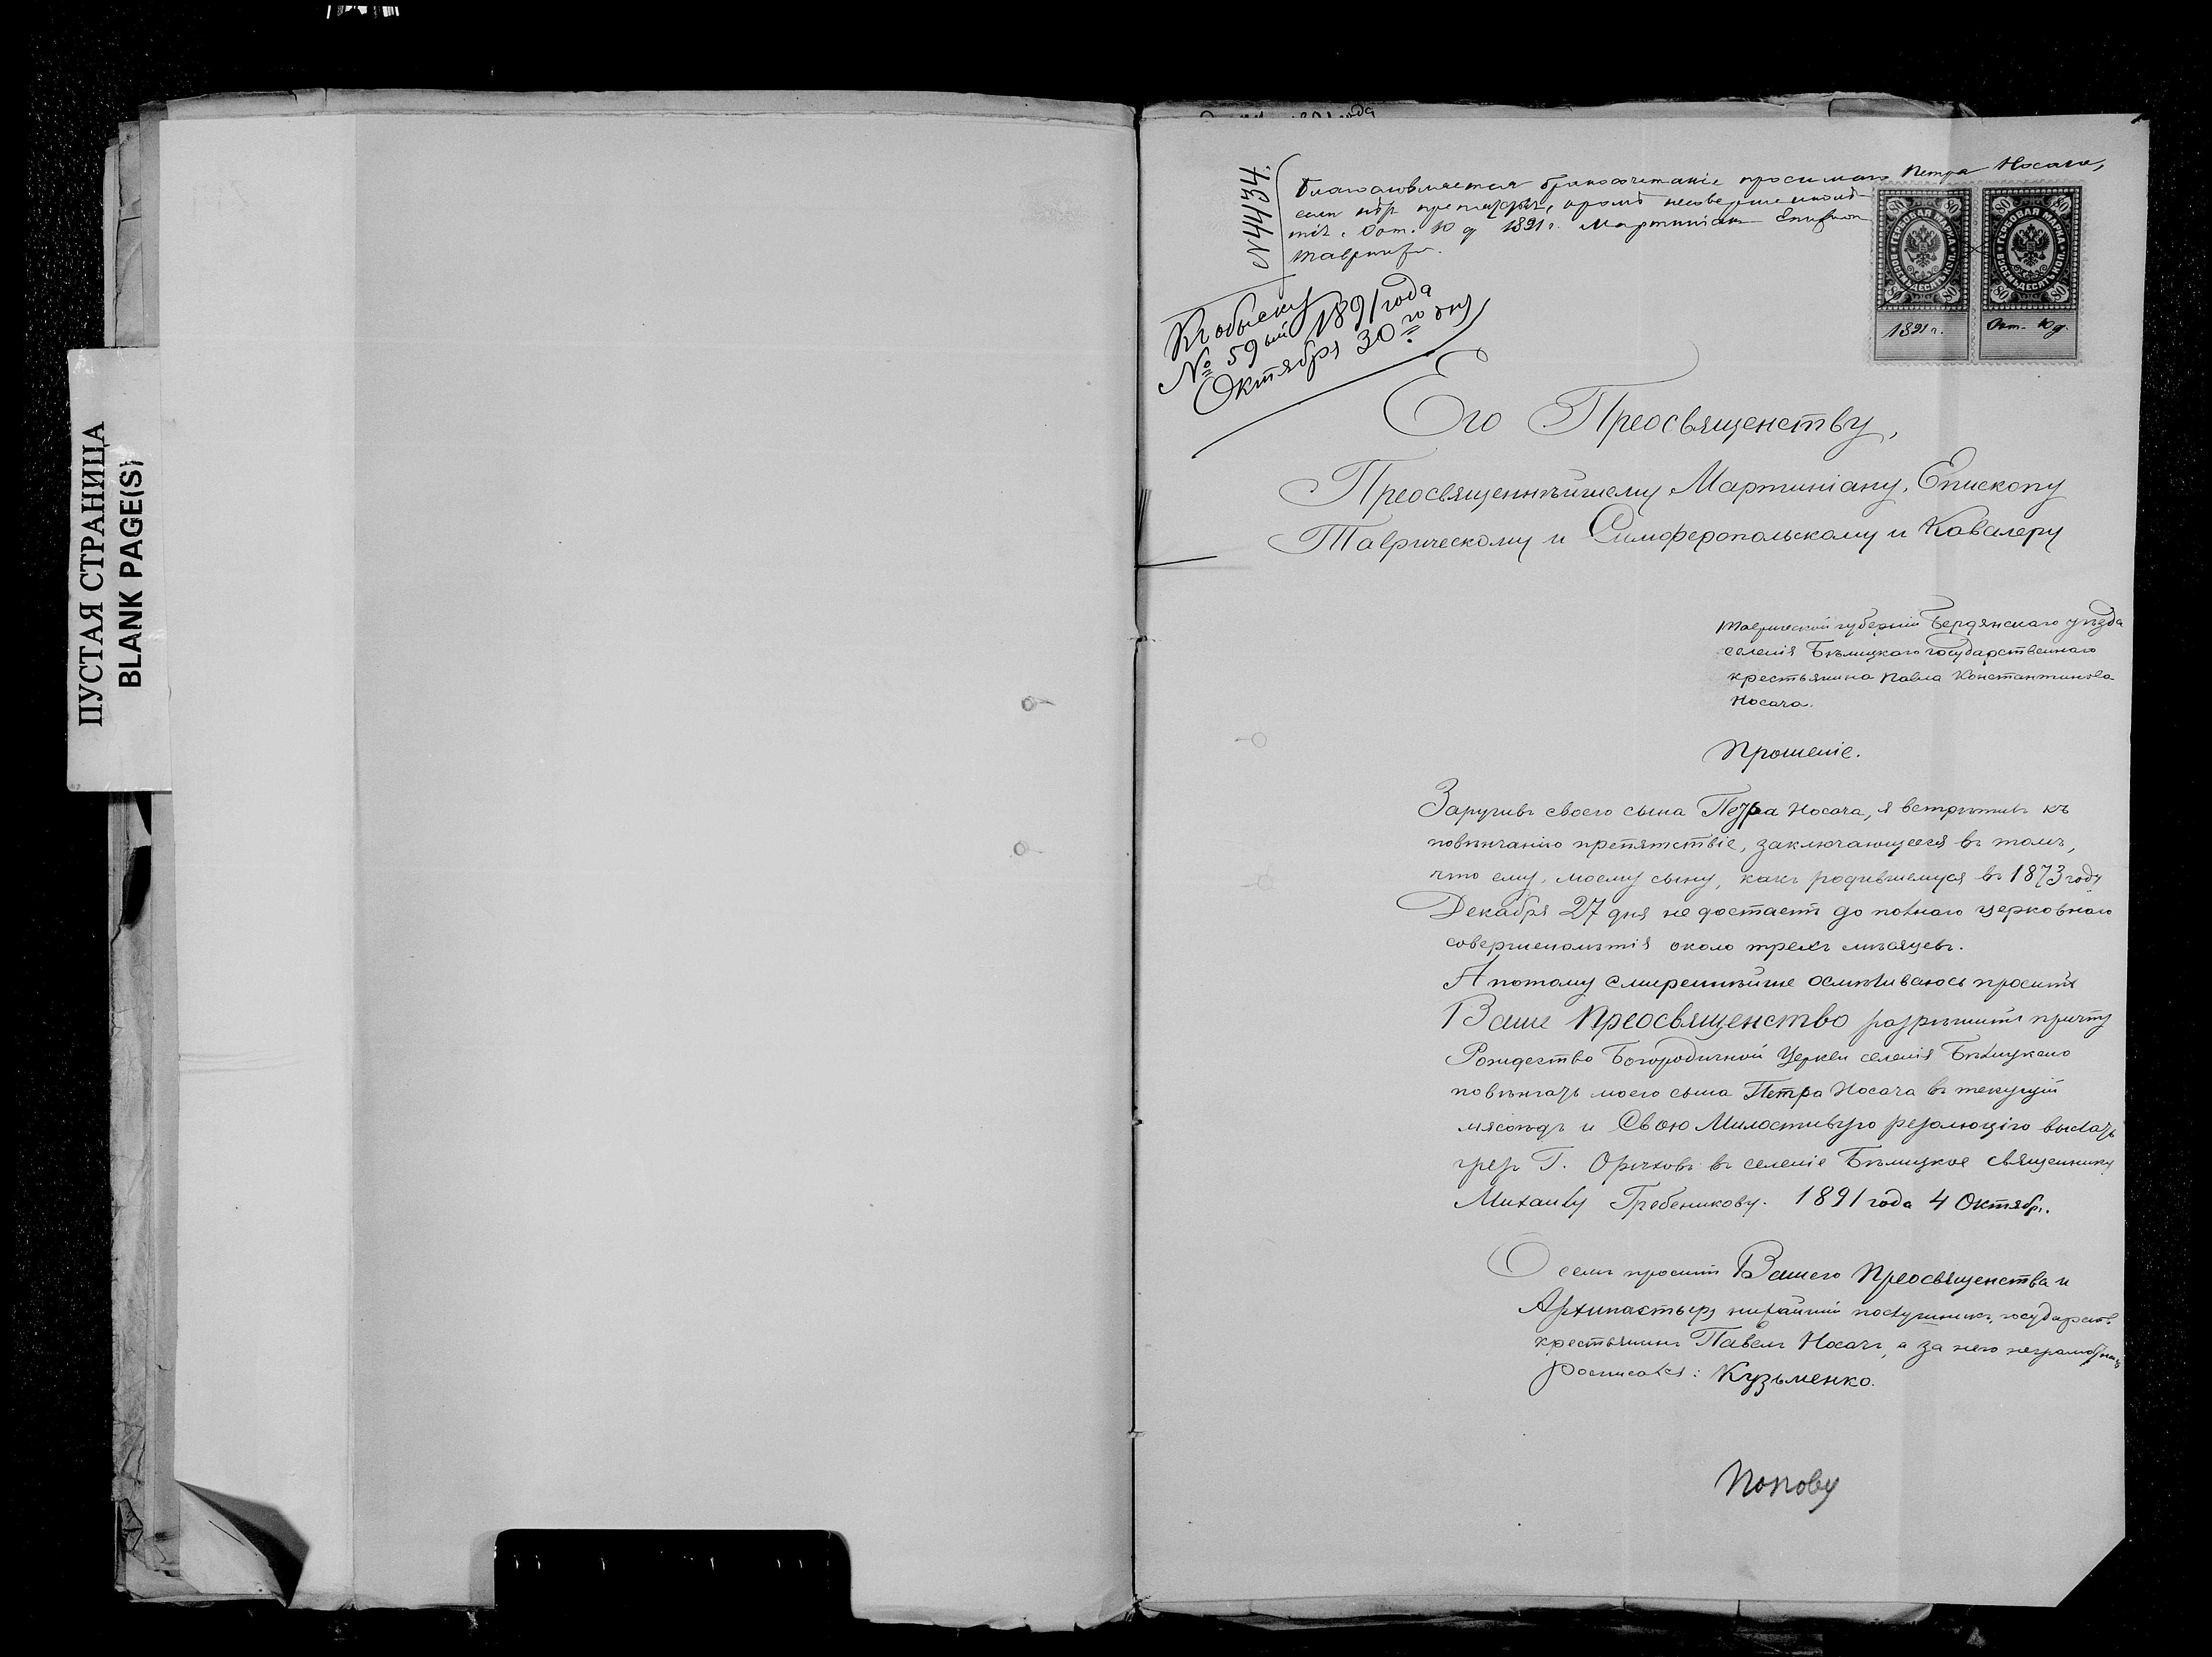 ПУСТАЯ СТРАНИЦА
BLANK PAGE(S)
1891 года
№ 4434
Благословляется бракосочетаніе просимаго Петра Носача,
если нѣт препятствій, кромѣ несовершеннолѣ-
тія. Окт. 10 д 1891 г. Мартиніан Епископ
Таврическ.
Къ обыску
№ 59ый 1891 года
Октября 30го дня
80 80 ГЕРБОВАЯ МАРКА ВОСЕМЬДЕСЯТЪ КОП. 80 80
80 80 ГЕРБОВАЯ МАРКА ВОСЕМЬДЕСЯТЪ КОП. 80 80
1891 г. Окт. 10 д.
Его Преосвященству,
Преосвященнѣйшему Мартиніану, Епископу
Таврическому и Симферопольскому и Кавалеру
Таврической губерніи Бердянскаго уѣзда
селенія Бѣлицкаго государственнаго
крестьянина Павла Константинова
Носача.
Прошеніе.
Заручивъ своего сына Петра Носача, я встрѣтивъ къ
повѣнчанію препятствіе, заключающееся въ томъ,
что ему, моему сыну, какъ родившемуся въ 1873 году
Декабря 27 дня не достаетъ до полнаго церковнаго
совершенолѣтія около трехъ мѣсяцевъ.
А потому смиреннѣйше осмѣливаюсь просить
Ваше Преосвященство разрѣшить причту
Рождество Богородичной Церкви селенія Бѣлицкаго
повѣнчать моего сына Петра Носача въ текущій
мясоѣдъ и Свою Милостивую резолюцію выслать
чрезъ Г. Орѣховъ въ селеніе Бѣлицкое священнику
Михаилу Гребеникову. 1891 года 4 Октябр.
О семъ проситъ Вашего Преосвященства и
Архипастыря нижайшій послушникъ, государств.
крестьянинъ Павелъ Носачъ, а за него неграмотнаго
росписался: Кузьменко.
Попову